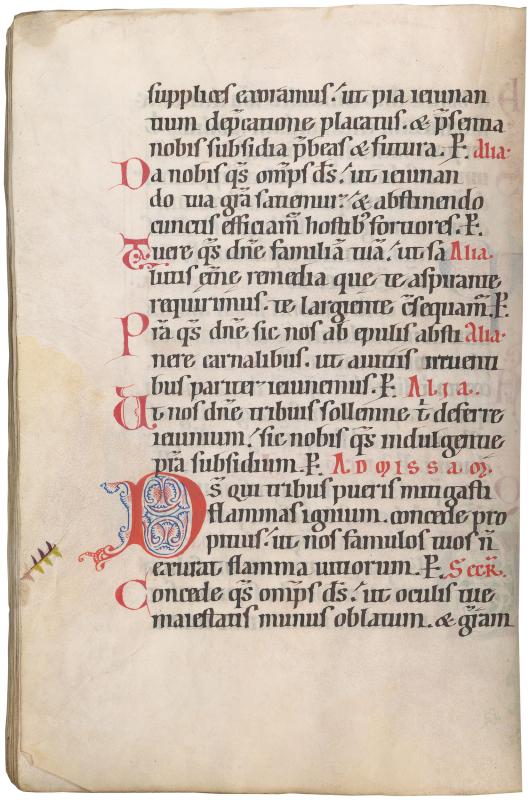 supplices exoramus. ut pia ieiunan
tium dep̄catione placatus. & p̄sentia
nobis subsidia p̄beas & futura. P̱. Alia.
Da nobis q̄s om̄ps d̄s. ut ieiunan
do tua gr̄a satiemur. & abstinendo
cunctis efficiam̄ hostib; fortiores. P̱.
Tuere q̄s dn̄e familiā tuā. ut sa Alia.
lutis et̄ne remedia que te aspirante
requirimus. te largiente c̄sequam̄. P̱.
Pr̄a q̄s dn̄e sic nos ab epulis absti Alia.
nere carnalibus. ut a uitiis irruenti
bus pariter ieiunemus. P̱. Alia.
Ut nos dn̄e tribuis sollenne t̄ deferre
ieiunium. sic nobis q̄s indulgentie
pr̄a subsidium. P̱. AD MISSAM.
D̄s qui tribus pueris mitigasti
flammas ignium. concede pro
pitius. ut nos famulos tuos n̄
exurat flamma uitiorum. P̱. Secr̄.
Concede q̄s om̄ps d̄s. ut oculis tue
maiestatis munus oblatum. & gr̄am